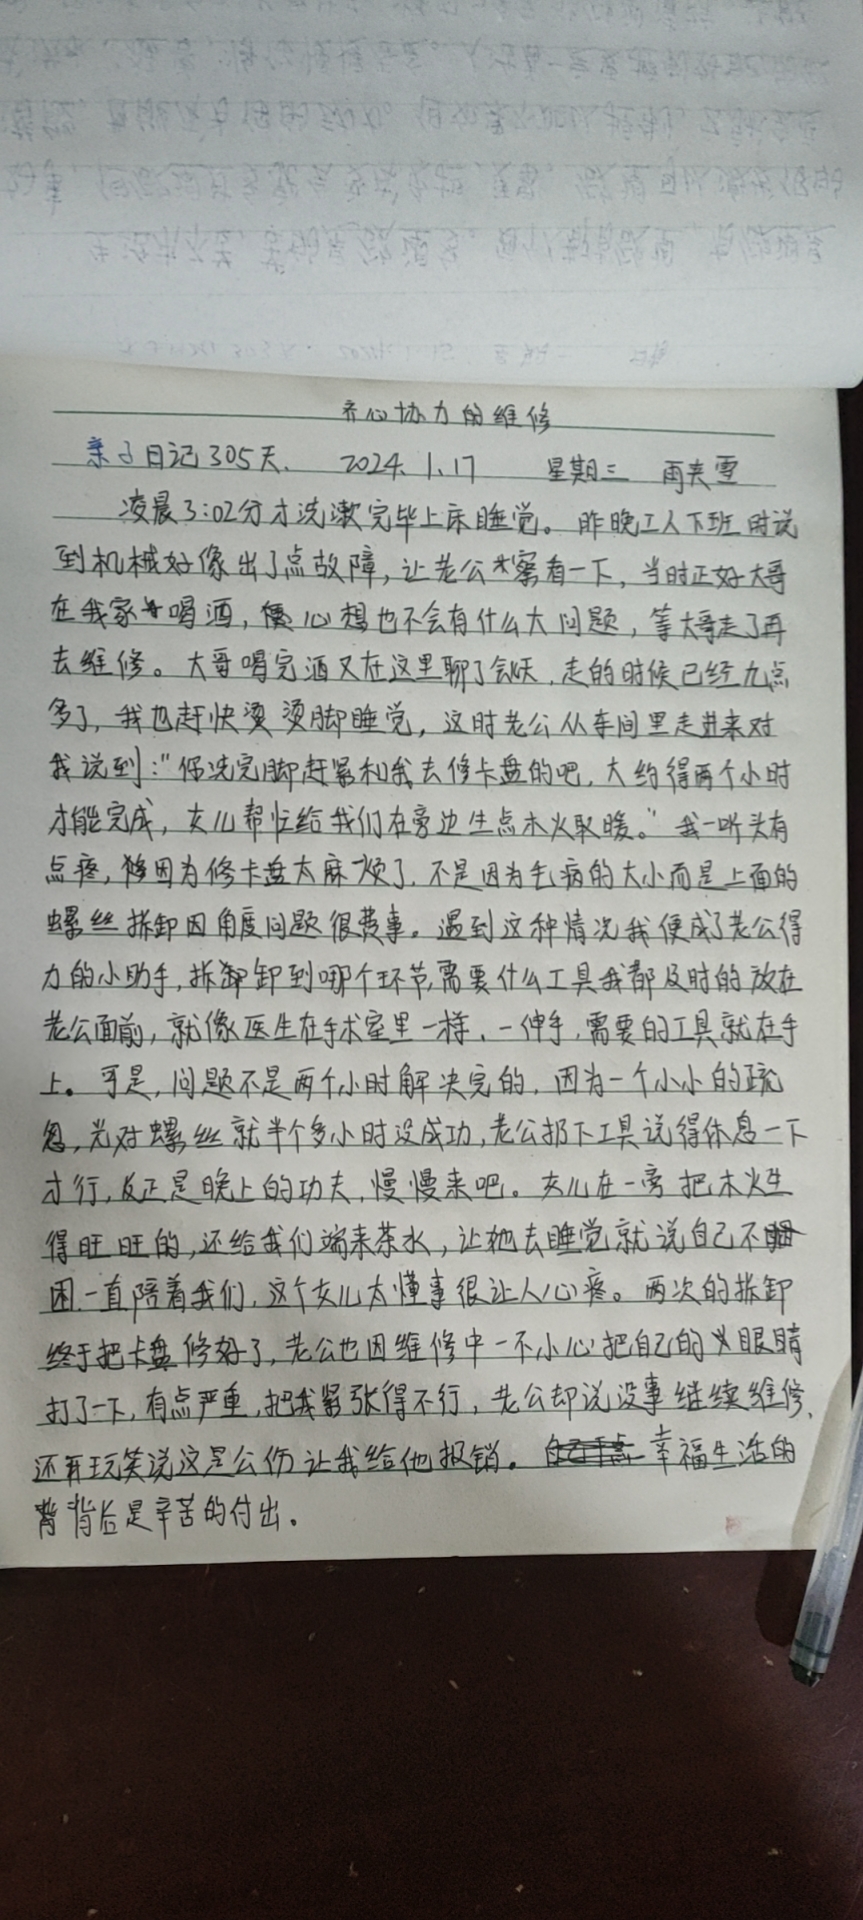 齐心协力的维修
亲子日记305天. 2024.1.17 星期三 雨夹雪
凌晨3:02分才洗漱完毕上床睡觉。昨晚工人下班时说
到机械好像出了点故障,让老公察看一下,当时正好大哥
在我家喝酒,心想也不会有什么大问题,等大哥走了再
去维修。大哥喝完酒又在这里聊了会天,走的时候已经九点
多了,我也赶快烫烫脚睡觉,这时老公从车间里走进来对
我说到:"你洗完脚赶紧和我去修卡盘的吧,大约得两个小时
才能完成,女儿帮忙给我们在旁边生点木火取暖。"我一听头有
点疼,因为修卡盘太麻烦了,不是因为毛病的大小而是上面的
螺丝拆卸因角度问题很费事。遇到这种情况我便成了老公得
力的小助手,拆卸卸到哪个环节,需要什么工具我都及时的放在
老公面前,就像医生在手术室里一样,一伸手,需要的工具就在手
上。可是,问题不是两个小时解决完的,因为一个小小的疏
忽,光对螺丝就半个多小时没成功,老公扔下工具说得休息一下
才行,反正是晚上的功夫,慢慢来吧。女儿在一旁把木火生
得旺旺的,还给我们端来茶水,让她去睡觉就说自己不
困,一直陪着我们,这个女儿太懂事很让人心疼。两次的拆卸
终于把卡盘修好了,老公也因维修中一不小心把自己的眼睛
打了一下,有点严重,把我紧张得不行,老公却说没事继续维修,
还开玩笑说这是公伤让我给他报销。幸福生活的
背背后是辛苦的付出。